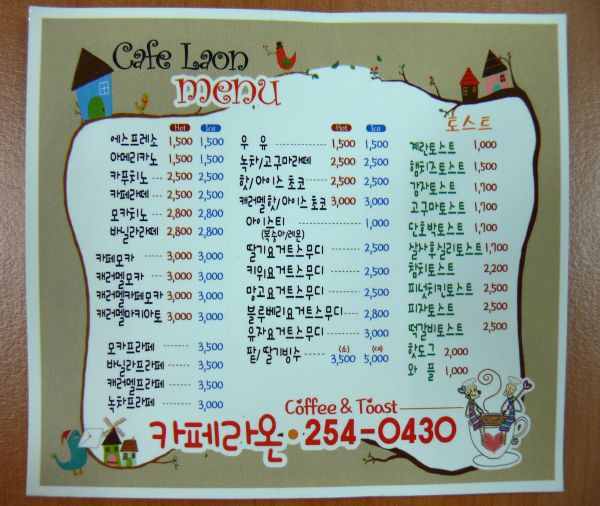 Cafe Laon
menu
Hot Ice
에스프레소 1,500 1,500
아메리카노 1,500 1,500
카푸치노 2,500 2,500
카페라떼 2,500 2,500
모카치노 2,800 2,800
바닐라라떼 2,800 2,800
카페모카 3,000 3,000
캐러멜모카 3,000 3,000
캐러멜카페모카 3,000 3,000
캐러멜마키아토 3,000 3,000
모카프라페 3,500
바닐라프라페 3,500
캐러멜프라페 3,500
녹차프라페 3,000
Hot Ice
우 유 1,500 1,500
녹차/고구마라떼 2,500 2,500
핫/아이스 초코 2,500 2,500
캐러멜핫/아이스 초코 3,000 3,000
아이스티 1,000
(복숭아/레몬)
딸기요거트스무디 2,500
키위요거트스무디 2,500
망고요거트스무디 2,500
블루베리요거트스무디 2,800
유자요거트스무디 3,000
(소) (대)
팥/딸기빙수 3,500 5,000
토스트
계란토스트 1,000
햄치즈토스트 1,500
감자토스트 1,700
고구마토스트 1,700
단호박토스트 1,700
살사후실리토스트 1,700
참치토스트 2,200
피넛치킨토스트 2,500
피자토스트 2,500
떡갈비토스트 2,500
핫도그 2,000
와 플 1,000
Coffee & Toast
카페라온 • 254-0430